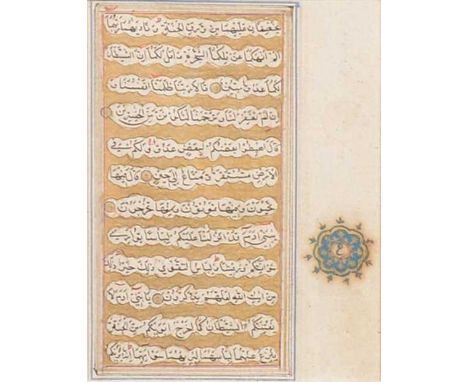 يخصفان عليهما من ورق الجنة وناديهما ربهما
الم انهكما عن تلكما الشجرة واقل لكما ان الشيطان
لكما عدو مبين قالا ربنا ظلمنا انفسنا
وان لم تغفر لنا وترحمنا لنكونن من الخسرين
قال اهبطوا بعضكم لبعض عدو ولكم في
الارض مستقر ومتاع الى حين قال فيها
تحيون وفيها تموتون ومنها تخرجون
يبني ادم قد انزلنا عليكم لباسا يواري
سواتكم وريشا ولباس التقوى ذلك خير ذلك
من ايت الله لعلهم يذكرون يا بني ادم لا
يفتننكم الشيطان كما اخرج ابويكم من الجنة
ينزع عنهما لباسهما ليريهما سواتهما انه يريكم
ع